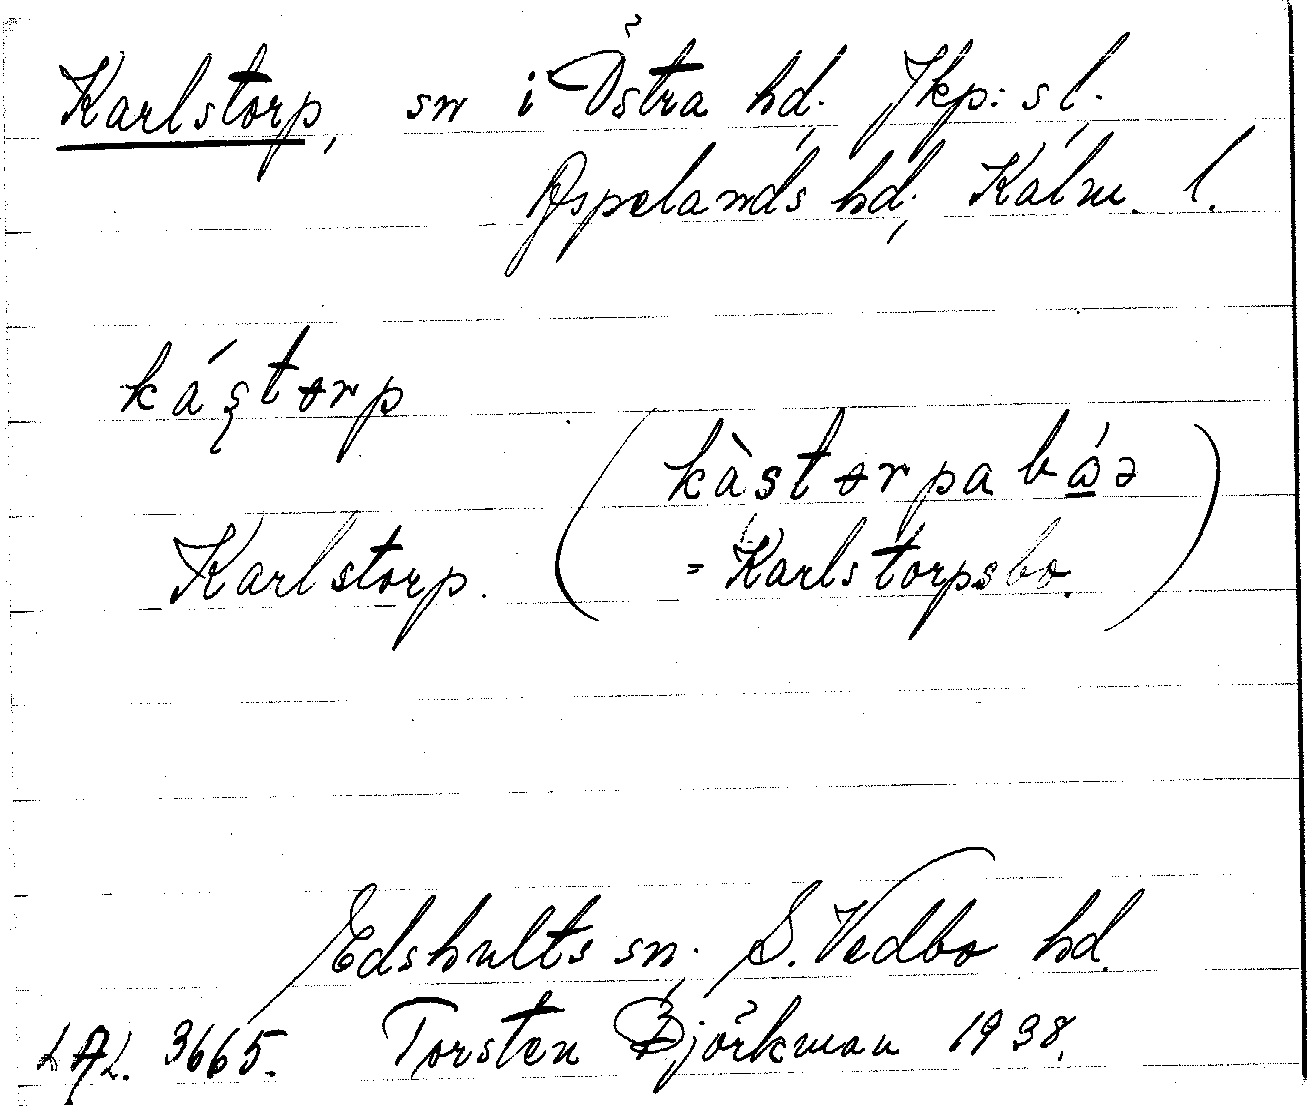 Karlstorp, sn i Östra hd, Jkp:s l.
Aspelands hd; Kalm. l.
kás̨tɵrp
(kàstɵrpabǻə
Karlstorp. = Karlstorpsbo.)
Edshults sn; S. Vedbo hd.
LAL. 3665. Torsten Björkman 1938.